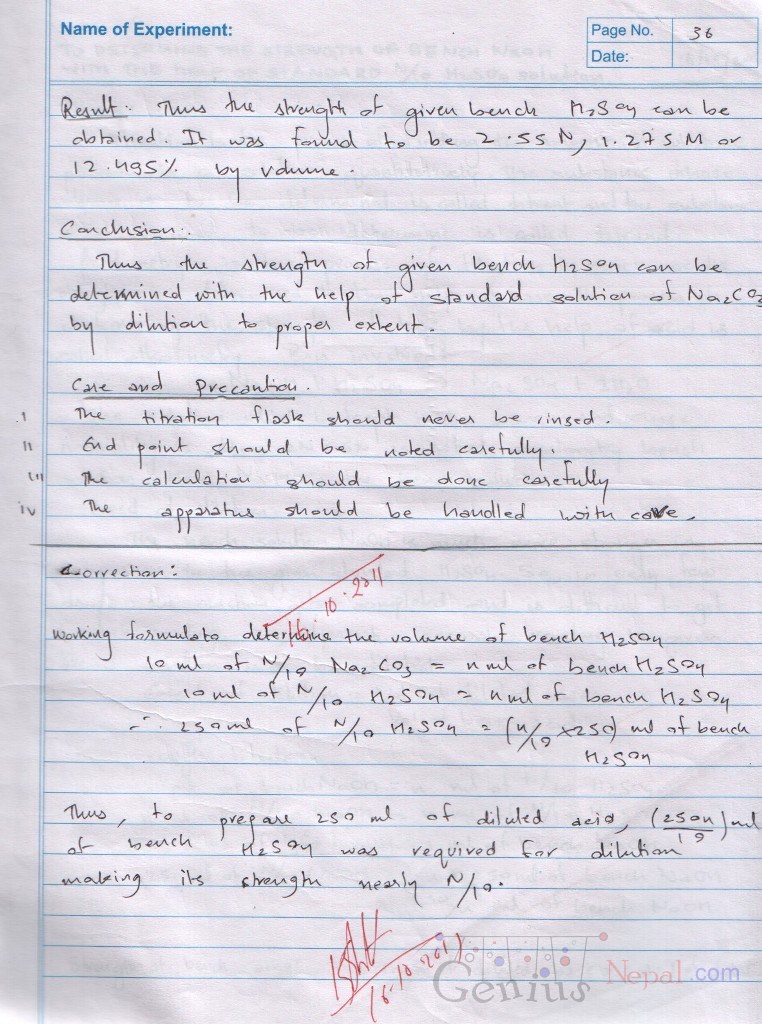 Name of Experiment:
Page No. 36
Date:
Result: Thus the strength of given bench H2SO4 can be
obtained. It was found to be 2.55 N, 1.275 M or
12.495% by volume.
Conclusion:
Thus the strength of given bench H2SO4 can be
determined with the help of standard solution of Na2CO3
by dilution to proper extent.
Care and Precaution.
i The titration flask should never be rinsed.
ii End point should be noted carefully.
iii The calculation should be done carefully
iv The apparatus should be handled with care.
Correction:
16.10.2011
Working formula to determine the volume of bench H2SO4
10 ml of N/10 Na2CO3 = n ml of bench H2SO4
10 ml of N/10 H2SO4 = n ml of bench H2SO4
∴ 250 ml of N/10 H2SO4 = (n/10 × 250) ml of bench
H2SO4
Thus, to prepare 250 ml of diluted acid, (250n/10) ml
of bench H2SO4 was required for dilution
making its strength nearly N/10.
16.10.2011
Genius Nepal.com